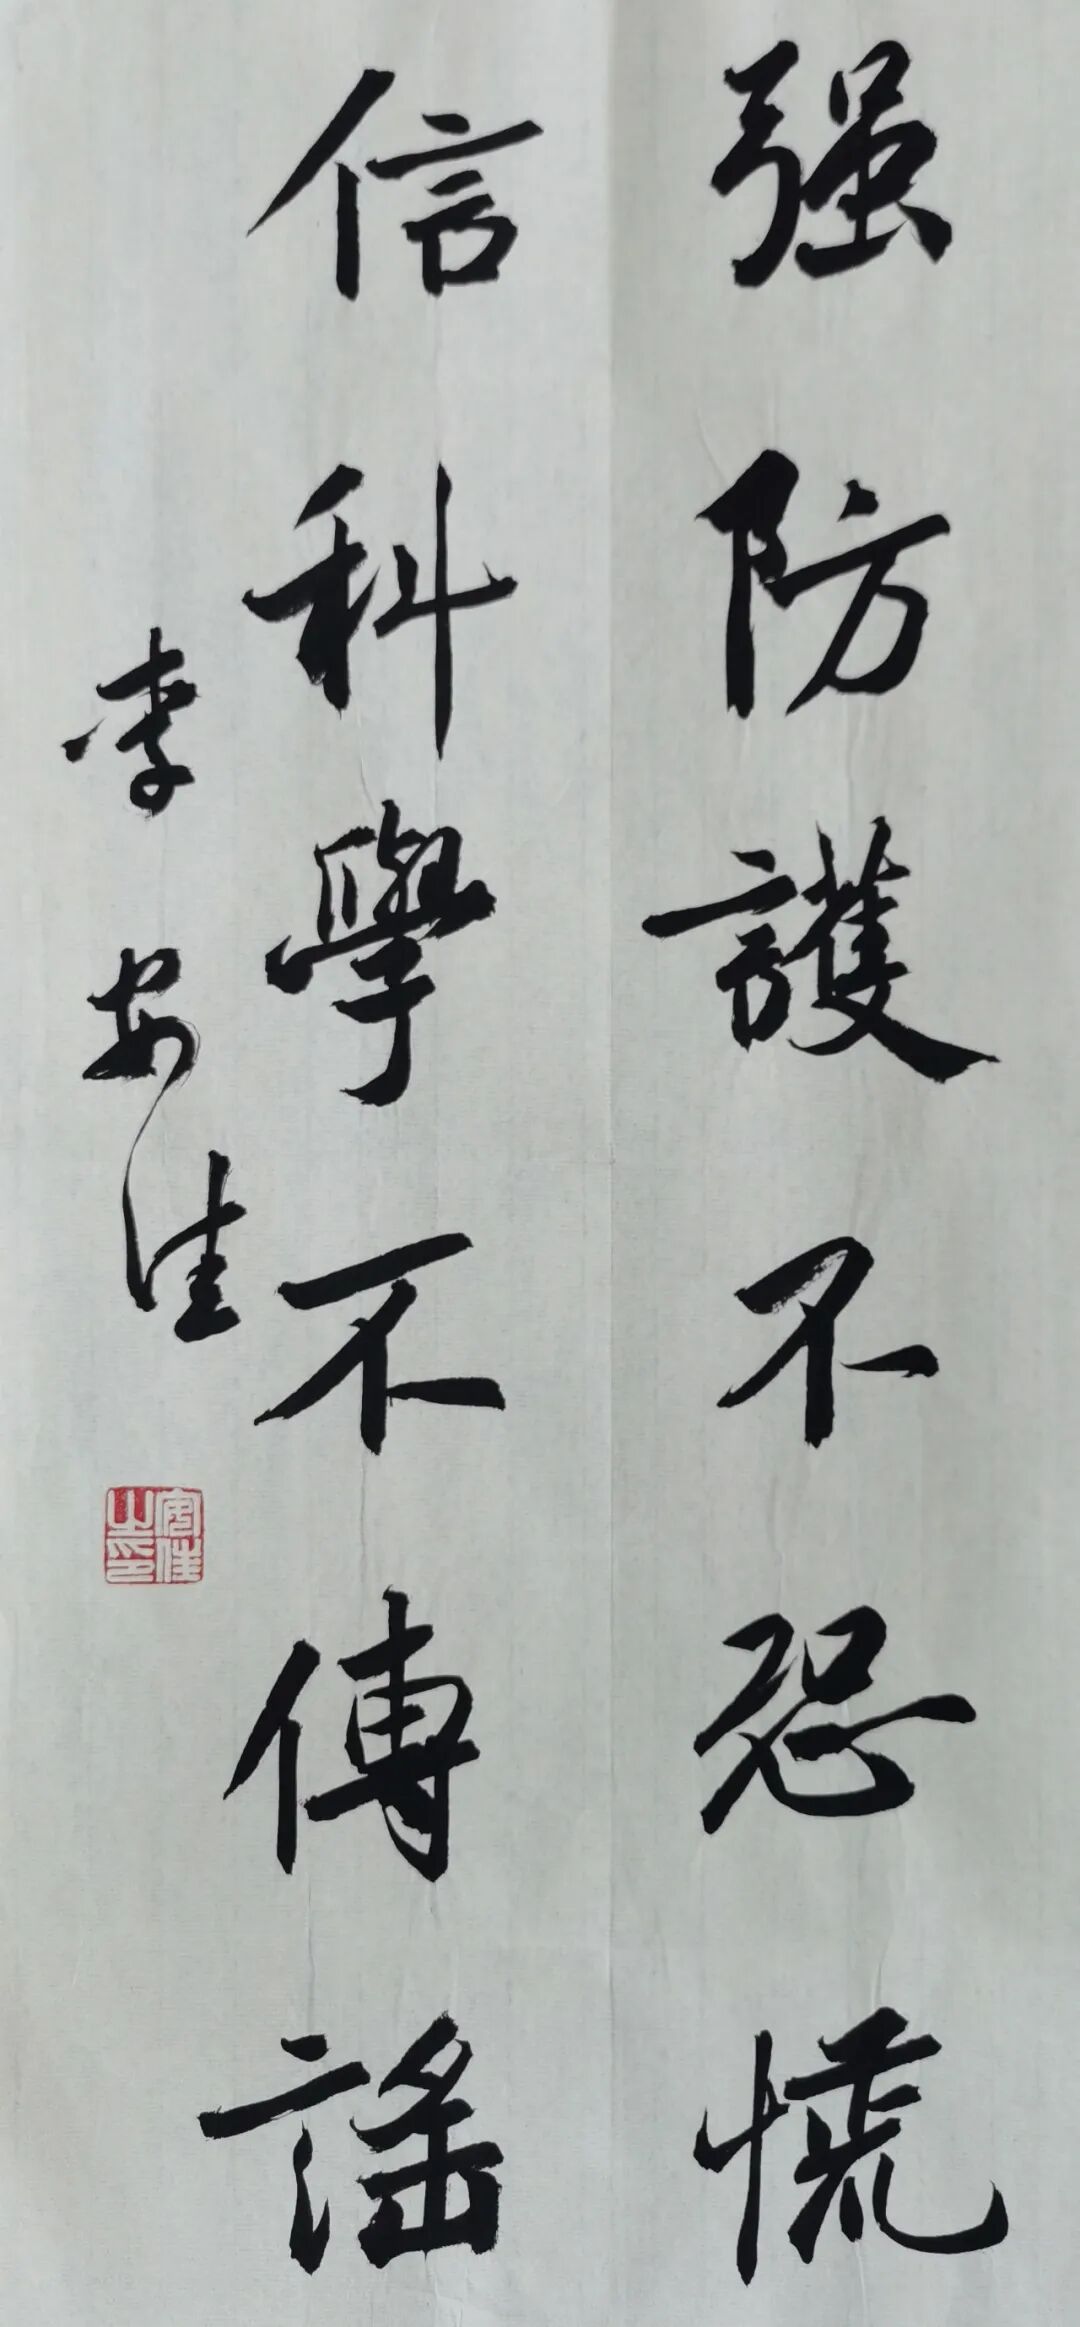 强防護不恐慌
信科學不傳謠
李安佳
安佳之印